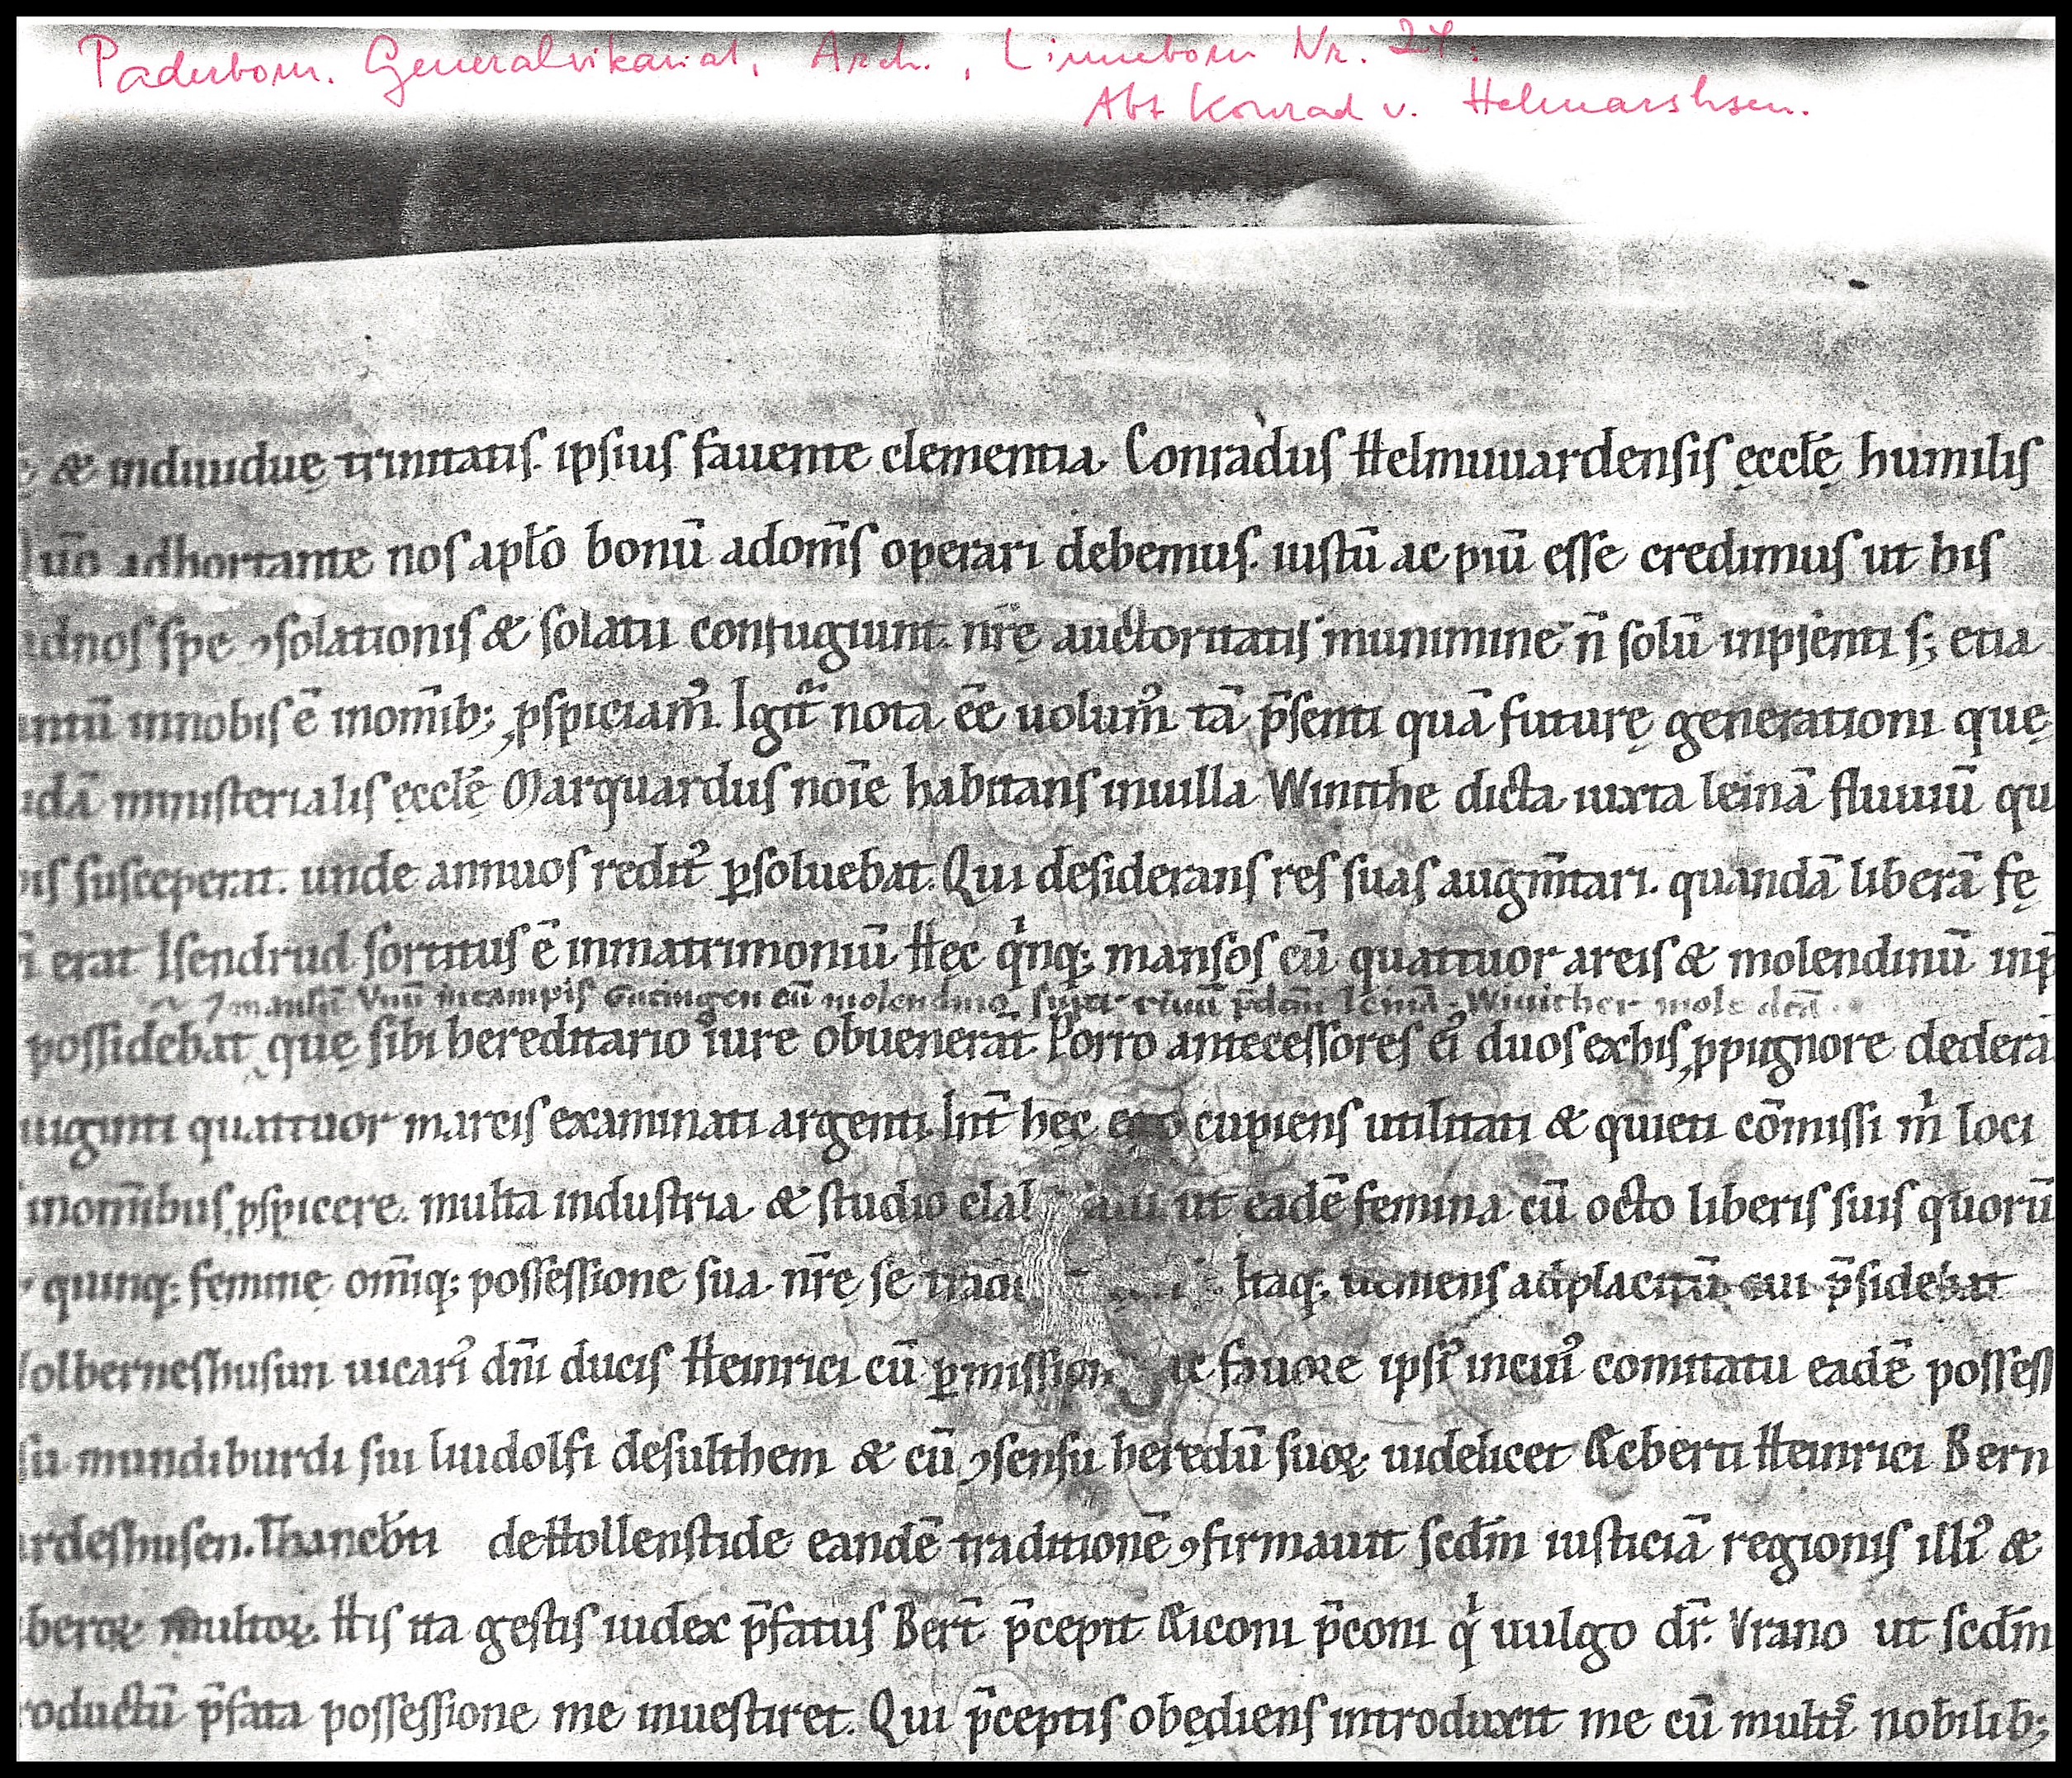 Paderborn. Generalvikariat, Arch., Linneborn Nr. 24.
Abt Konrad v. Helmarshsen.
& indiuiduę trinitatis. ipsius fauente clementia. Conradus Helmuuardensis ęcclę̄ humilis
adhortante nos apłō bonū adom̄s operari debemus. iustū ac piū esse credimus ut his
adnos spe ꝯsolationis & solatii confugiunt. nr̄ę auctoritatis munimine n̄ solū inpsenti s; etiā
innobis ē inom̄ib; ꝓspiciamꝰ. Igit̄ nota ēē uolumꝰ tā p̄senti quā futurę generationi quę
ministerialis ęcclę̄ Marquardus noīe habitans inuilla Winithe dicta iuxta leinā fluuiū qu
susceperat. unde annuos reditꝰ ꝑsoluebat. Qui desiderans res suas augm̄tari. quandā liberā fę
erat Isendrud sortitus ē inmatrimoniū. Hec qͥnq; mansos cū quattuor areis & molendinū inp̄
⁊ mansū Vnū incampis Gutingen cū molendino super riuū p̄dcm̄ leinā Winither mole dcā.
possidebat quę sibi hereditario iure obuenerāt. Porro antecessores eiꝰ duos exhis ꝓpignore dederā
uiginti quattuor marcis examinati argenti. Int̄ hęc ego cupiens utilitati & quieti cōmissi m̍ loci
inom̄ibus ꝓspicere. multa industria & studio elab ut eadē femina cū octo liberis suis quorū
quinq; feminę om̄iq; possessione sua nr̄ę se Itaq; ueniens adplacitū cui p̄sidebat
uicariꝰ dn̄i ducis Heinrici cū ꝑmission ac fauore ipsiꝰ incuiꝰ comitatu eadē possess
mundiburdi sui liudolfi desulthem & cū ꝯsensu heredū suoꝝ uidelicet Ecberti Heinrici Bern
ardeshusen. Thancb̄ti de Hollenstide eandē traditionē ꝯfirmauit scdm̄ iusticiā regionis illiꝰ &
beroꝝ multoꝝ. His ita gestis iudex p̄fatus Bert̄ p̄cepit Riconi p̄coni qͥ uulgo dr̄. Vrano ut scdm̄
oductū p̄fata possessione me inuestiret. Qui p̄ceptis obędiens introduxit me cū multiſ nobilib;